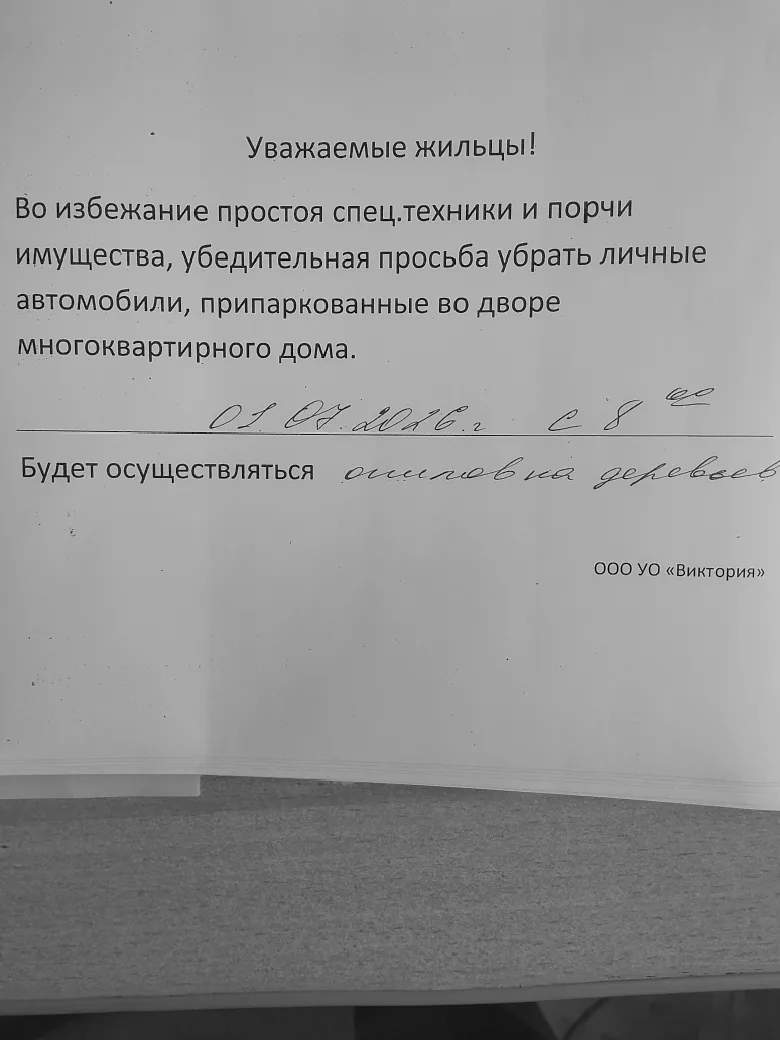 Уважаемые жильцы!
Во избежание простоя спец.техники и порчи
имущества, убедительная просьба убрать личные
автомобили, припаркованные во дворе
многоквартирного дома.
01.07.2026.г с 8 00
Будет осуществляться опиловка деревьев
ООО УО «Виктория»